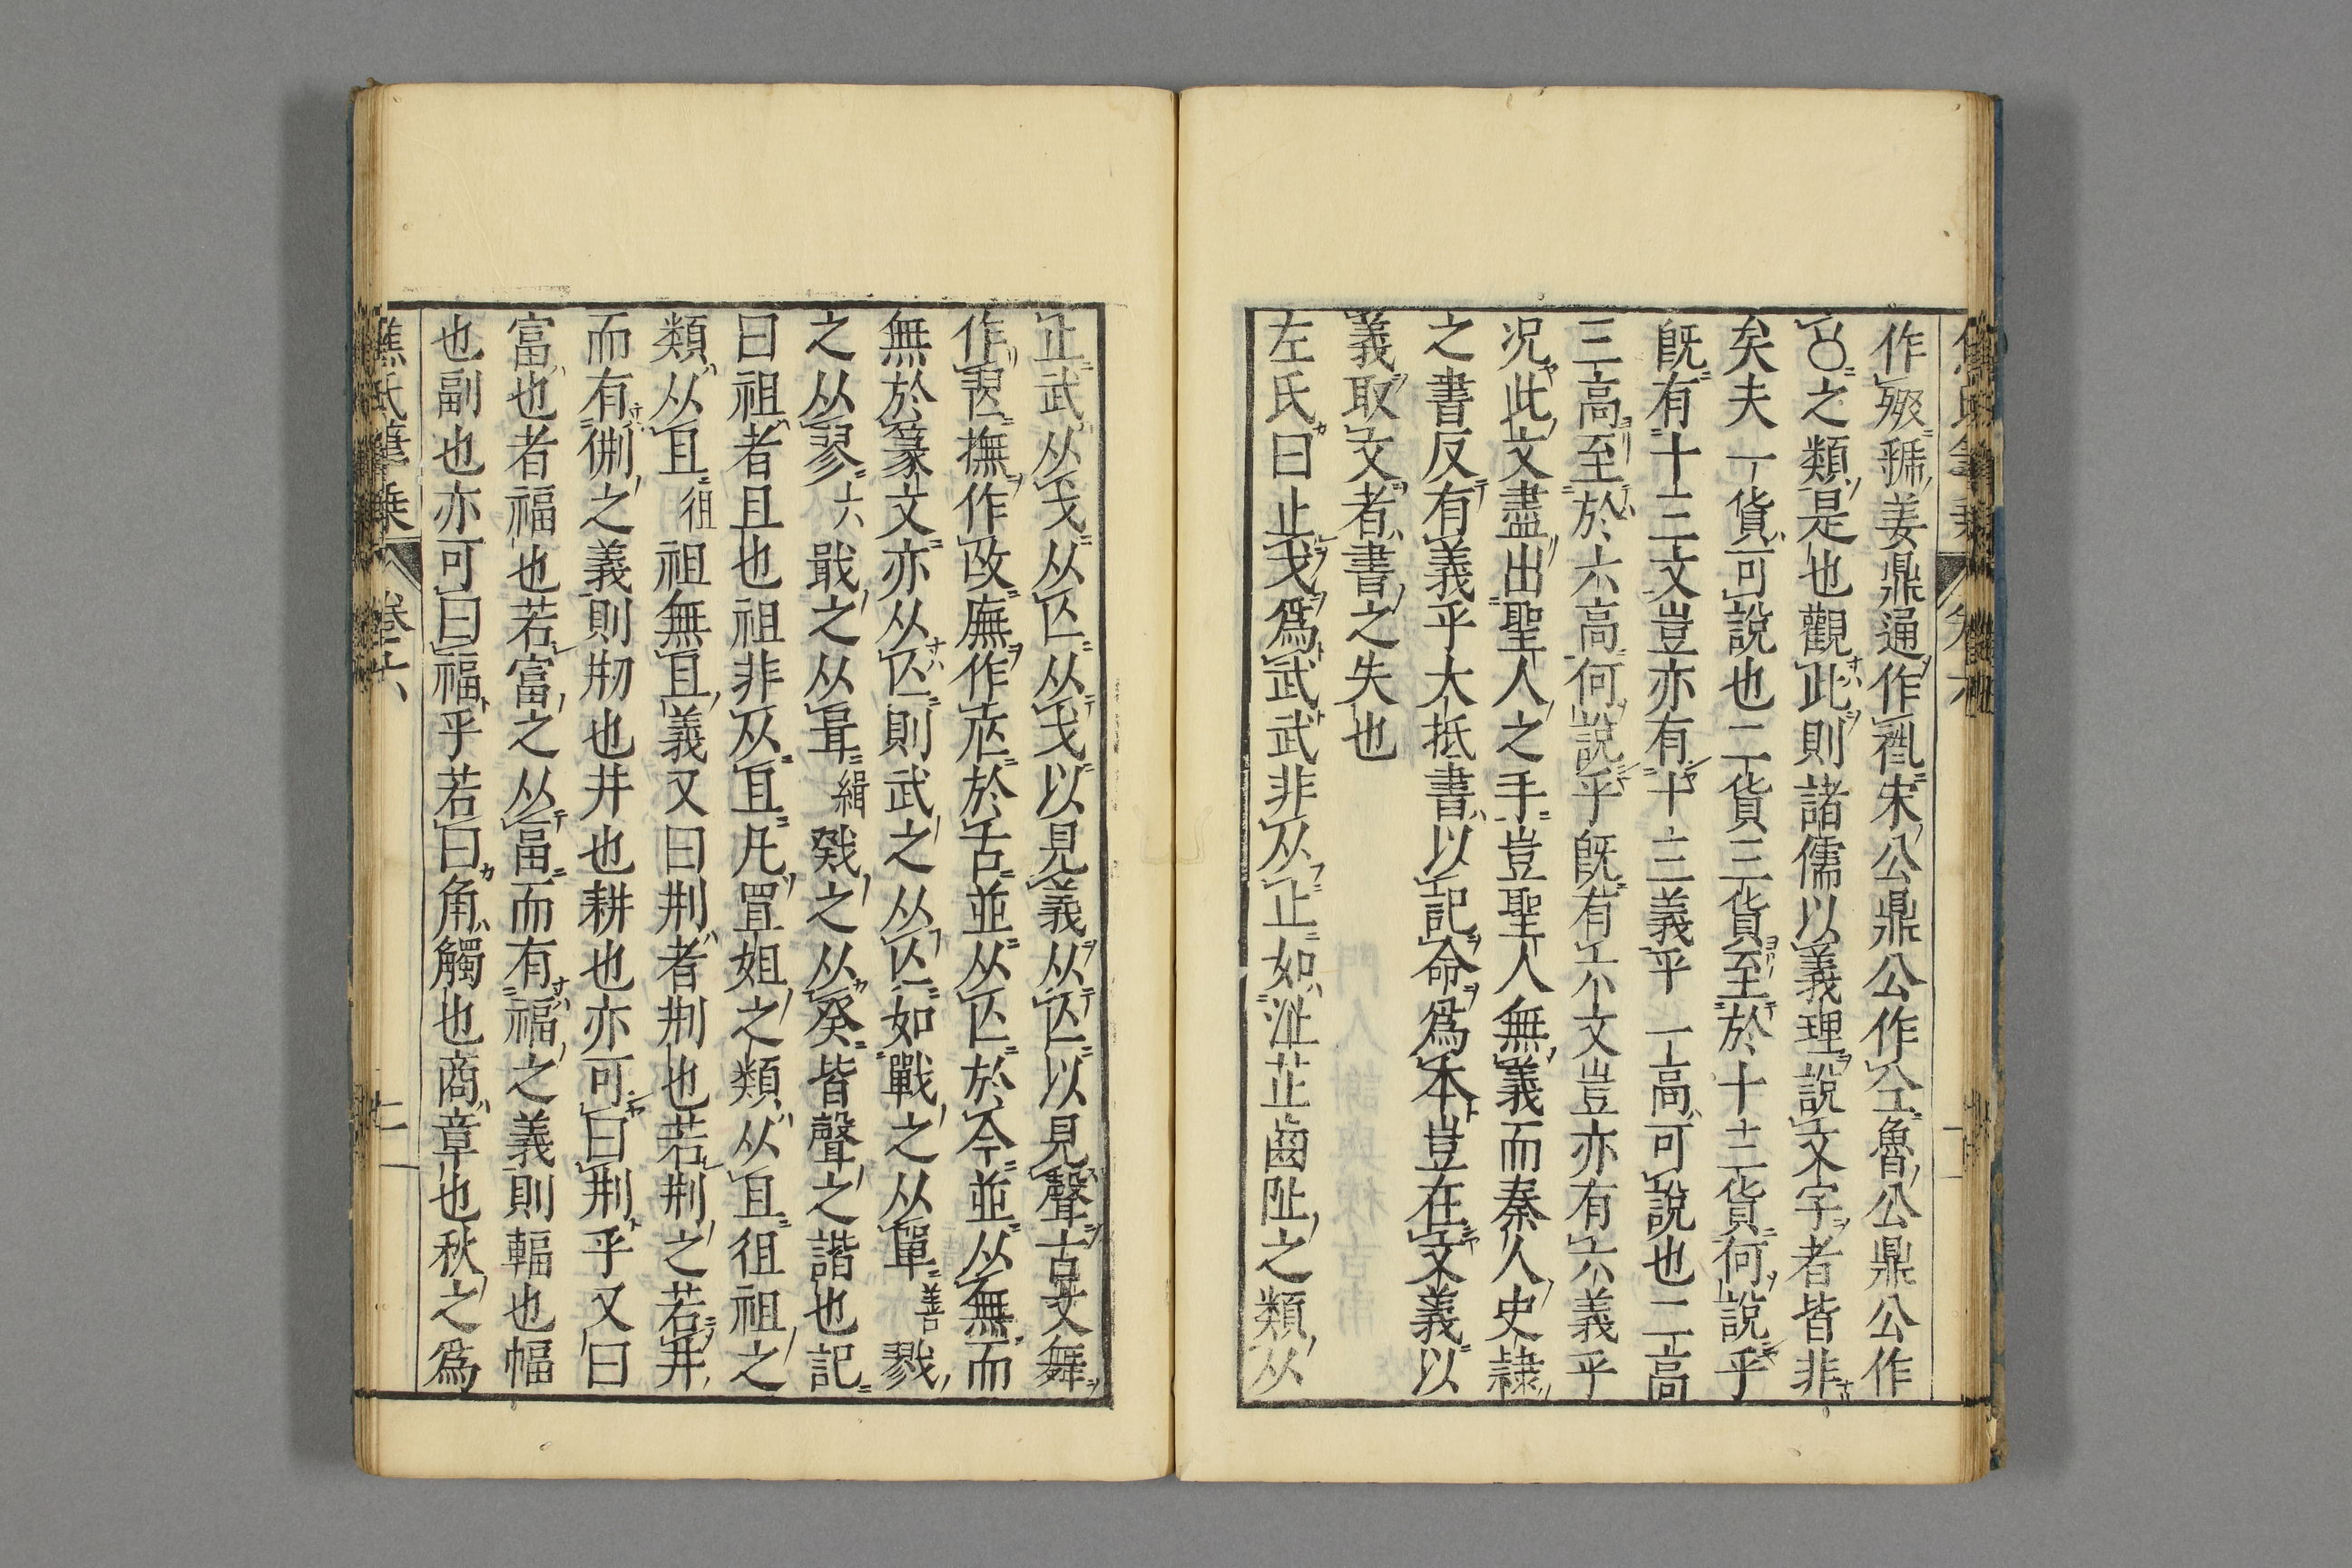 作 虢姜鼎通作 宋公鼎公作 魯公鼎公作
之類是也觀此則諸儒以義理說文字者皆非
矣夫一貨可說也二貨三貨至於十三貨何說乎
旣有十三文豈亦有十三義乎一高可說也二高
三高至於六高何說乎旣有六文豈亦有六義乎
況此文盡出聖人之手豈聖人無義而秦人史隷
之書反有義乎大抵書以記命爲本豈在文義以
義取文者書之失也
左氏曰止戈爲武武非从止如沚芷齒阯之類从
止武从戈从亾从戈以見義从亾以見聲古文舞
作𦐀撫作𢻬廡作 於舌並从亾於今並从無而
無於篆文亦从亾則武之从亾如戰之从單善戮
之从翏六戢之从咠緝戣之从癸皆聲之諧也記
曰祖者且也祖非从且凡罝姐之類从且徂祖之
類从且徂祖無且義又曰荆者荆也若荆之若井
而有侀之義則剏也井也耕也亦可曰荆乎又曰
富也者福也若富之从畐而有福之義則輻也幅
也副也亦可曰福乎若曰角觸也商章也秋之爲
焦氏筆乗 卷六 十一